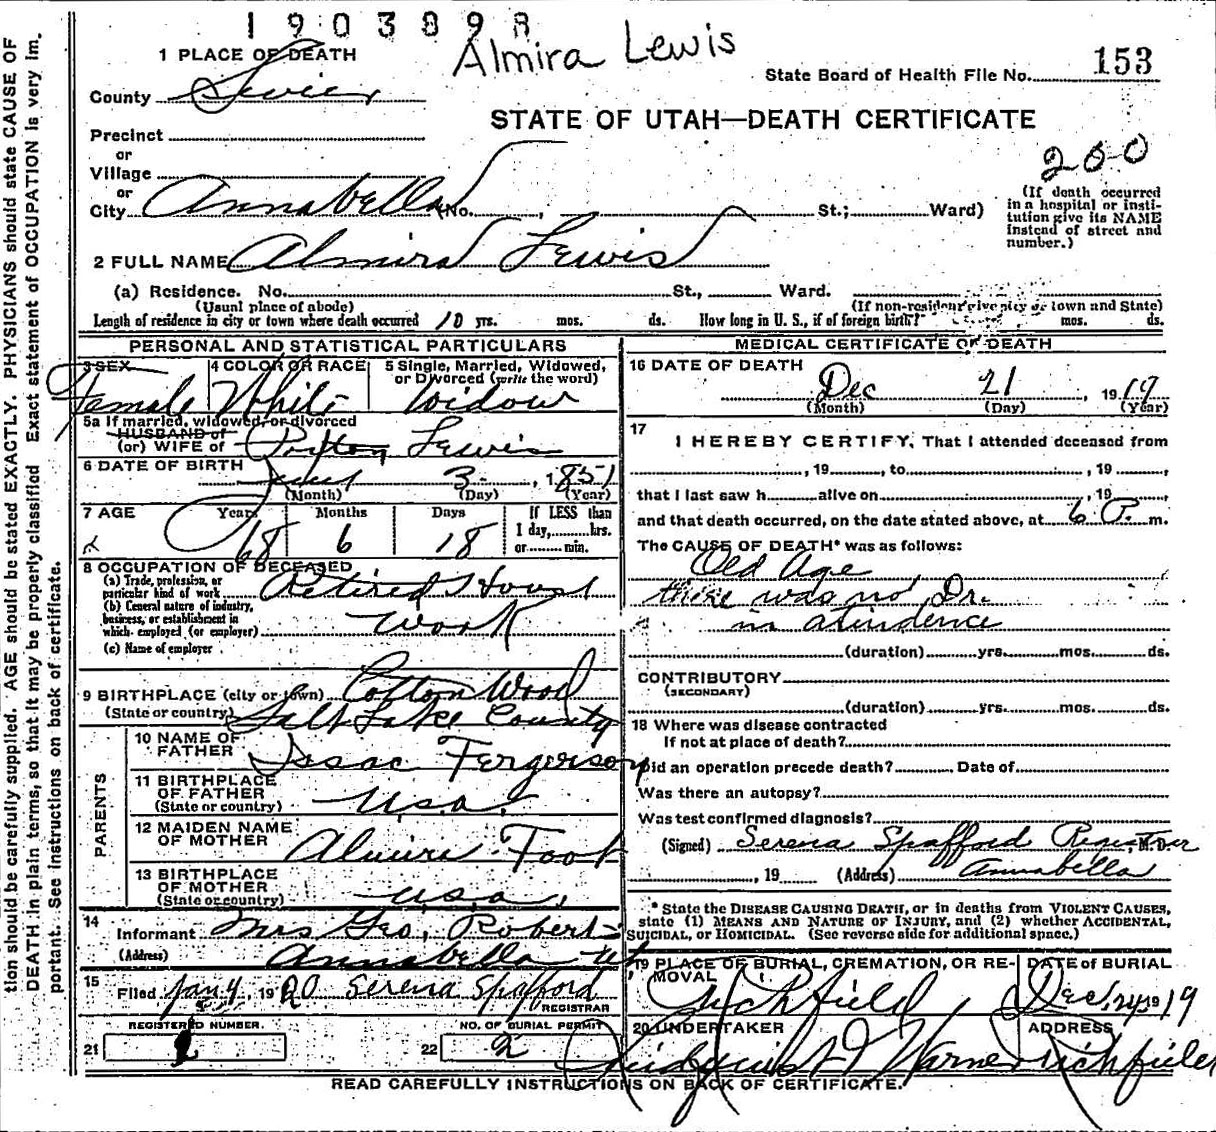 1903898
Almira Lewis
1 PLACE OF DEATH
State Board of Health File No. 153
County Sevier
STATE OF UTAH—DEATH CERTIFICATE
Precinct
or
200
Village
or
City Annabella (No. , St.; Ward)
(If death occurred
in a hospital or insti-
tution give its NAME
instead of street and
number.)
2 FULL NAME Almira Lewis
(a) Residence. No. St., Ward.
(Usual place of abode) (If non-resident give city or town and State)
Length of residence in city or town where death occurred 10 yrs. mos. ds. How long in U. S., if of foreign birth? mos. ds.
PERSONAL AND STATISTICAL PARTICULARS
3 SEX 4 COLOR OR RACE 5 Single, Married, Widowed,
or Divorced (write the word)
Female White Widow
5a If married, widowed, or divorced
HUSBAND of
(or) WIFE of Lewis
6 DATE OF BIRTH 3 , 1851
(Month) (Day) (Year)
7 AGE Years Months Days If LESS than
1 day, hrs.
or min.
68 6 18
8 OCCUPATION OF DECEASED
(a) Trade, profession, or
particular kind of work Retired House
(b) General nature of industry,
business, or establishment in
which employed (or employer) Work
(c) Name of employer
9 BIRTHPLACE (city or town) Cotton Wood
(State or country) Salt Lake County
PARENTS
10 NAME OF
FATHER Isaac Fergerson
11 BIRTHPLACE
OF FATHER
(State or country) U.S.A.
12 MAIDEN NAME
OF MOTHER Almira Foot
13 BIRTHPLACE
OF MOTHER
(State or country) U.S.A.
14 Informant Mrs Geo. Roberts
(Address) Annabella Ut
15 Filed Jan 4, 1920 Serena Spafford
REGISTRAR
REGISTERED NUMBER. NO. OF BURIAL PERMIT
21 1 22 2
MEDICAL CERTIFICATE OF DEATH
16 DATE OF DEATH
Dec 21 1919
(Month) (Day) (Year)
17
I HEREBY CERTIFY, That I attended deceased from
, 19 , to , 19 ,
that I last saw h alive on , 19 ,
and that death occurred, on the date stated above, at 6 P. m.
The CAUSE OF DEATH* was as follows:
Old Age
there was no Dr.
in atendence
(duration) yrs. mos. ds.
CONTRIBUTORY
(SECONDARY)
(duration) yrs. mos. ds.
18 Where was disease contracted
If not at place of death?
Did an operation precede death? Date of
Was there an autopsy?
Was test confirmed diagnosis?
(Signed) Serena Spafford M. D.
, 19 (Address) Annabella
* State the DISEASE CAUSING DEATH, or in deaths from VIOLENT CAUSES,
state (1) MEANS AND NATURE OF INJURY, and (2) whether ACCIDENTAL,
SUICIDAL, or HOMICIDAL. (See reverse side for additional space.)
19 PLACE OF BURIAL, CREMATION, OR RE-
MOVAL
DATE of BURIAL
Richfield Dec. 24 1919
20 UNDERTAKER ADDRESS
Richfield
READ CAREFULLY INSTRUCTIONS ON BACK OF CERTIFICATE.
tion should be carefully supplied. AGE should be stated EXACTLY. PHYSICIANS should state CAUSE OF
DEATH in plain terms, so that it may be properly classified Exact statement of OCCUPATION is very im.
portant. See instructions on back of certificate.